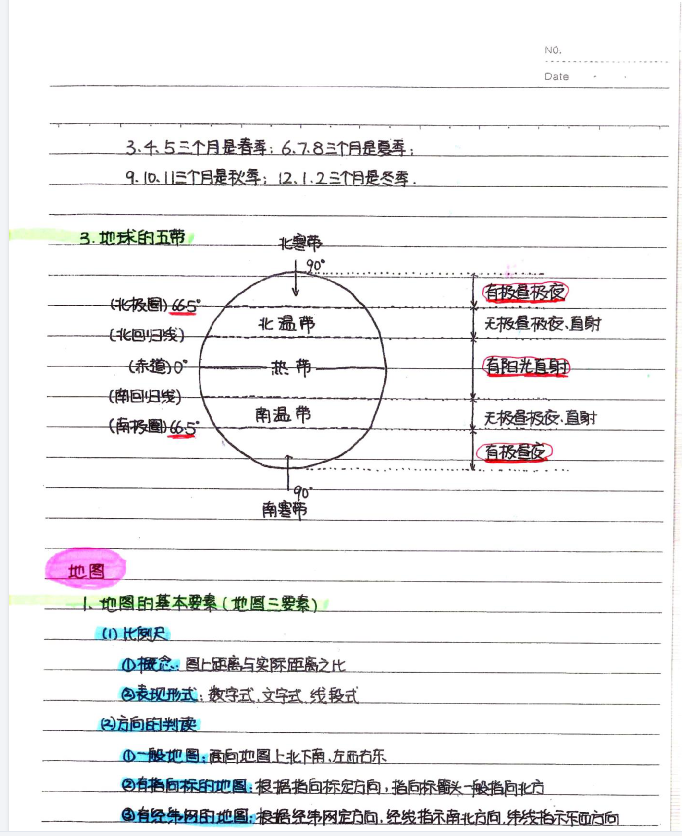 NO.
Date
3.4.5三个月是春季；6.7.8三个月是夏季；
9.10.11三个月是秋季；12.1.2三个月是冬季.
3.地球的五带
北寒带
90°
(北极圈) 66.5° 有极昼极夜
北温带 无极昼极夜、直射
(北回归线)
(赤道)0° 热带 有阳光直射
(南回归线)
南温带 无极昼极夜、直射
(南极圈) 66.5°
有极昼夜
90°
南寒带
地图
1.地图的基本要素(地图三要素)
(1)比例尺
①概念：图上距离与实际距离之比
②表现形式：数字式、文字式、线段式
(2)方向的判读
①一般地图：面向地图上北下南，左西右东
②有指向标的地图：根据指向标定方向，指向标箭头一般指向北方
③有经纬网的地图：根据经纬网定方向，经线指示南北方向，纬线指示东西方向